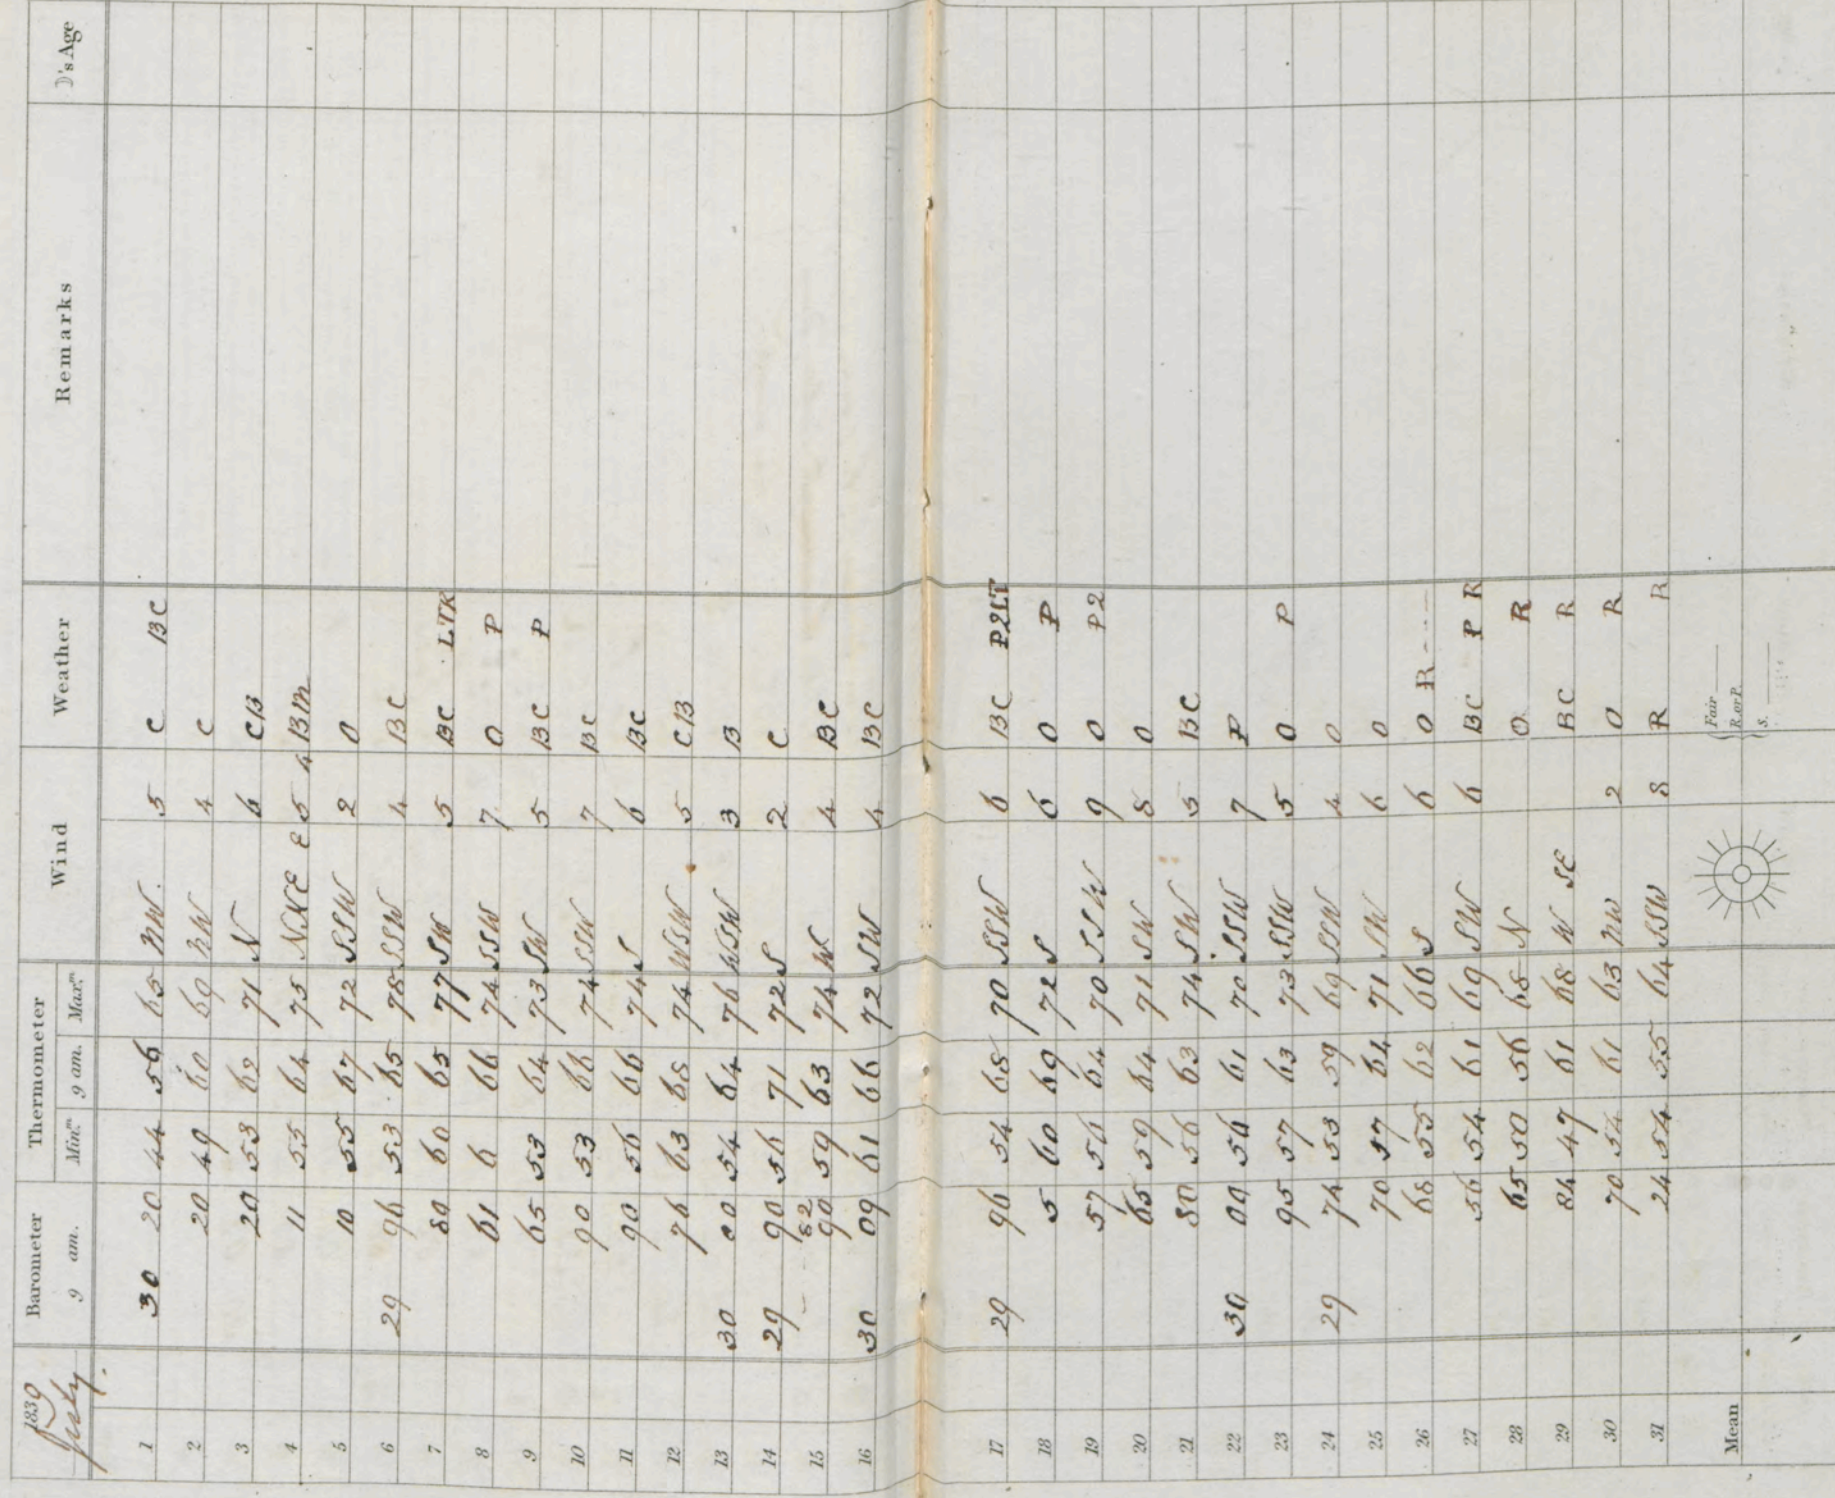 1839 July. Barometer Thermometer Wind Weather Remarks ☽'s Age
9 am. Min.m 9 am. Max.m
1 30 20 44 56 65 NW. 5 C BC
2 20 49 60 69 NW 4 C
3 20 53 62 71 N 6 CB
4 11 55 64 75 NNE E 5 4 BM
5 10 55 67 72 SSW 2 O
6 29 96 53 65 78 SSW 4 BC
7 80 60 65 77 SW 5 BC LTR
8 61 6 66 74 SSW 7 O P
9 65 53 64 73 SW 5 BC P
10 90 53 66 74 SSW 7 BC
11 90 56 66 74 S 6 BC
12 76 63 68 74 WSW 5 CB
13 30 00 54 64 76 WSW 3 B
14 29 90 56 71 72 S 2 C
15 82 90 59 63 74 W 4 BC
16 30 09 61 66 72 SW 4 BC
17 29 96 54 68 70 SSW 6 BC P2LT
18 5 60 69 72 S 6 O P
19 57 56 64 70 SSW 9 O P2
20 65 59 64 71 SW 8 O
21 80 56 63 74 SW 5 BC
22 30 00 56 61 70 SSW 7 P
23 95 57 63 73 SSW 5 O P
24 29 74 53 59 69 SSW 4 O
25 70 57 61 71 SW 6 O
26 68 55 62 66 S 6 O R ----
27 56 54 61 69 SW 6 BC P R
28 65 50 56 68 N O R
29 84 47 61 68 W SE BC R
30 70 54 61 63 NW 2 O R
31 24 54 55 64 SSW 8 R R
Mean
Fair
R. or P.
S.